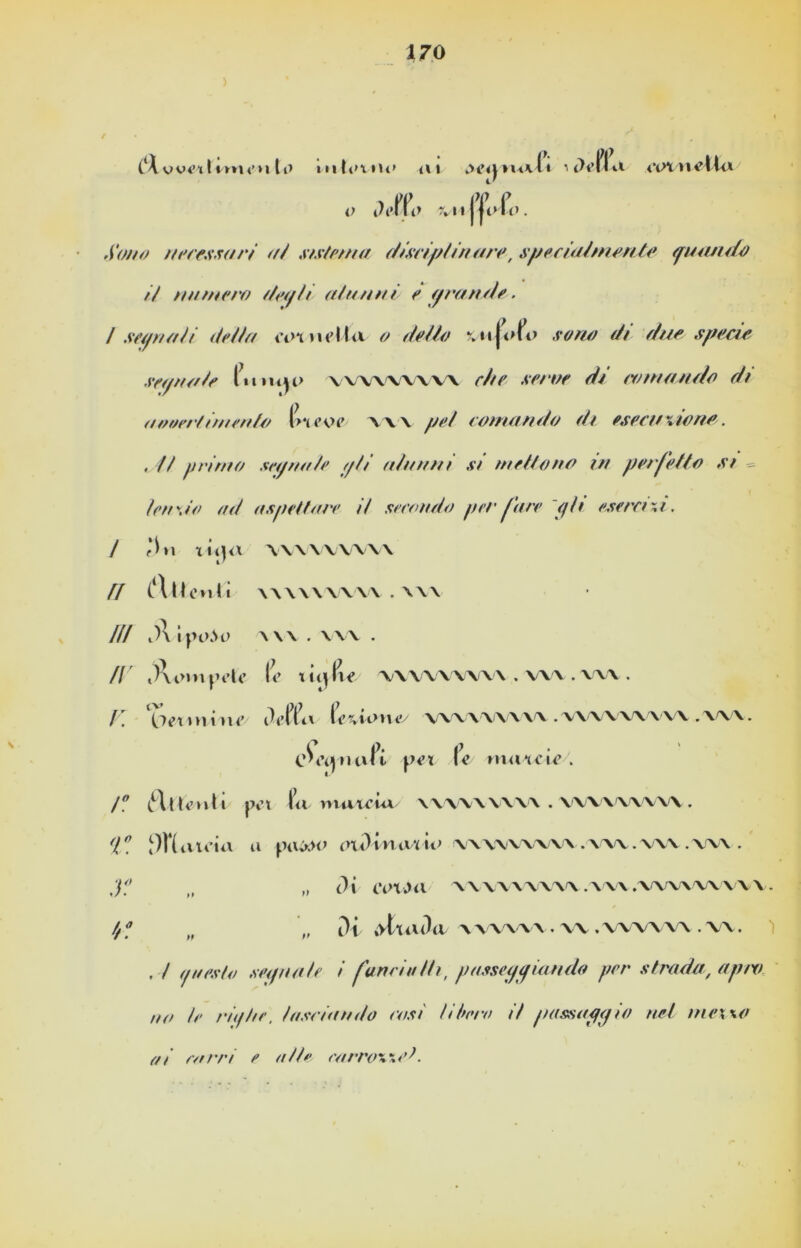 170
Avvertimento intorno ai segnali della cornetta
o dello zuffolo.
Sono necessari al sistema disciplinare, specialmente quando
il numero degli alunni è grande.
I segnali della cornetta o dello zufolo sono di due specie
segnale lungo \\\\\\\\\ che serve di comando di
avvertimento breve \\\ pel comando di esecuzione.
Al primo segnale gli alunni si mettono in perfetto si =
lenzio ad aspettare il secondo per fare gli esercizi.
I In riga \\\\\\\\\
II Attenti \\\\\\\\\ . \\\
III Riposo \\\ . \\\ .
IV Rompete le righe \\\\\\\\\ . \\\ . \\\ .
V. Termine della lezione \\\\\\\\\ . \\\\\\\\\ . \\\.
Segnali per le marcie.
1.º Attenti per la marcia \\\\\\\\\ . \\\\\\\\\ .
2.º Marcia a passo ordinario \\\\\\\\\ . \\\ . \\\ . \\\ .
3.º „ „ di corsa \\\\\\\\\ . \\\ . \\\\\\\\\ .
4.º „ „ di strada \\\\\\ . \\ . \\\\\\ . \\.
A questo segnale i fanciulli, passeggiando per strada, apro
no le righe, lasciando così libero il passaggio nel mezzo
ai carri e alle carrozze).